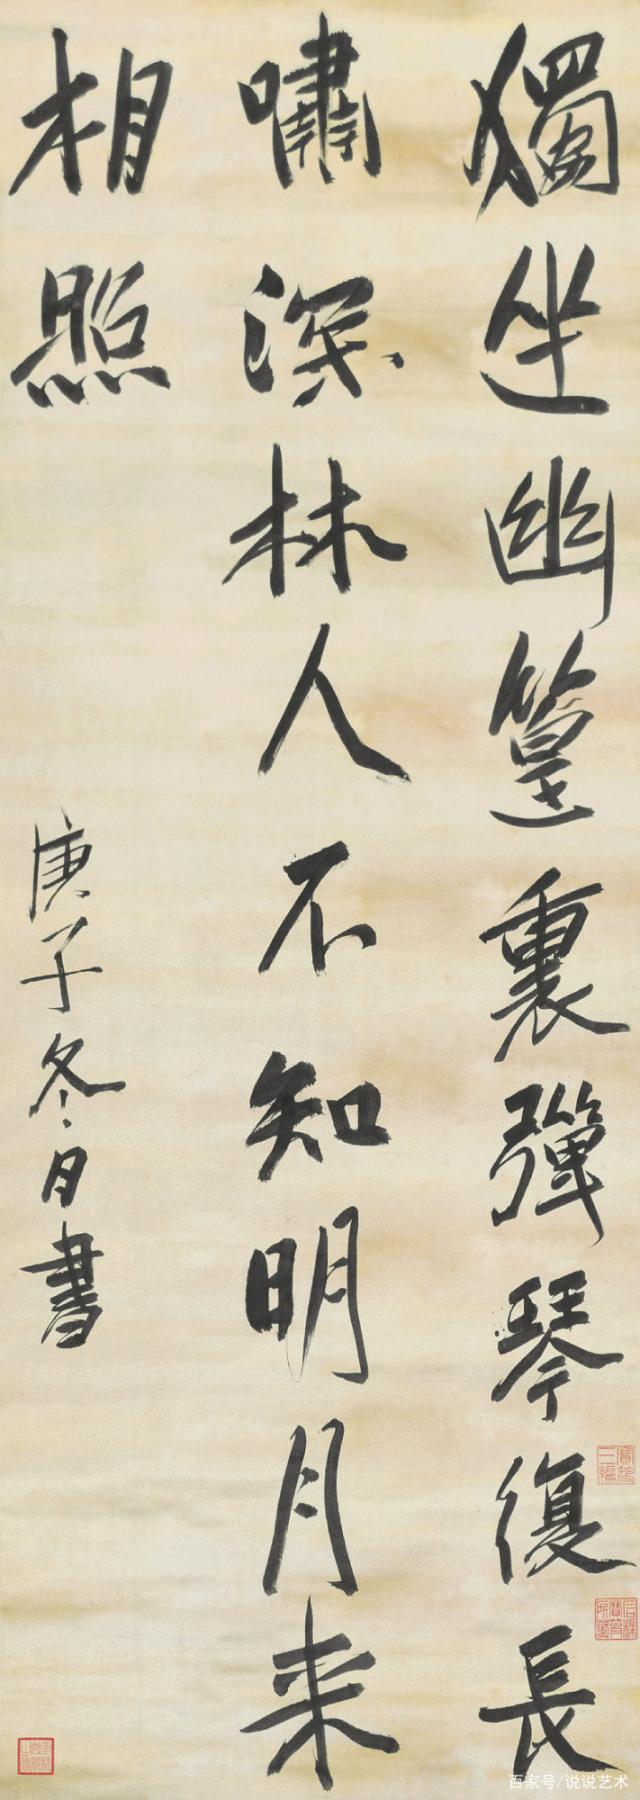 獨坐幽篁裏彈琴復長
嘯深林人不知明月来
相照
庚子冬月書
百家号/说说艺术